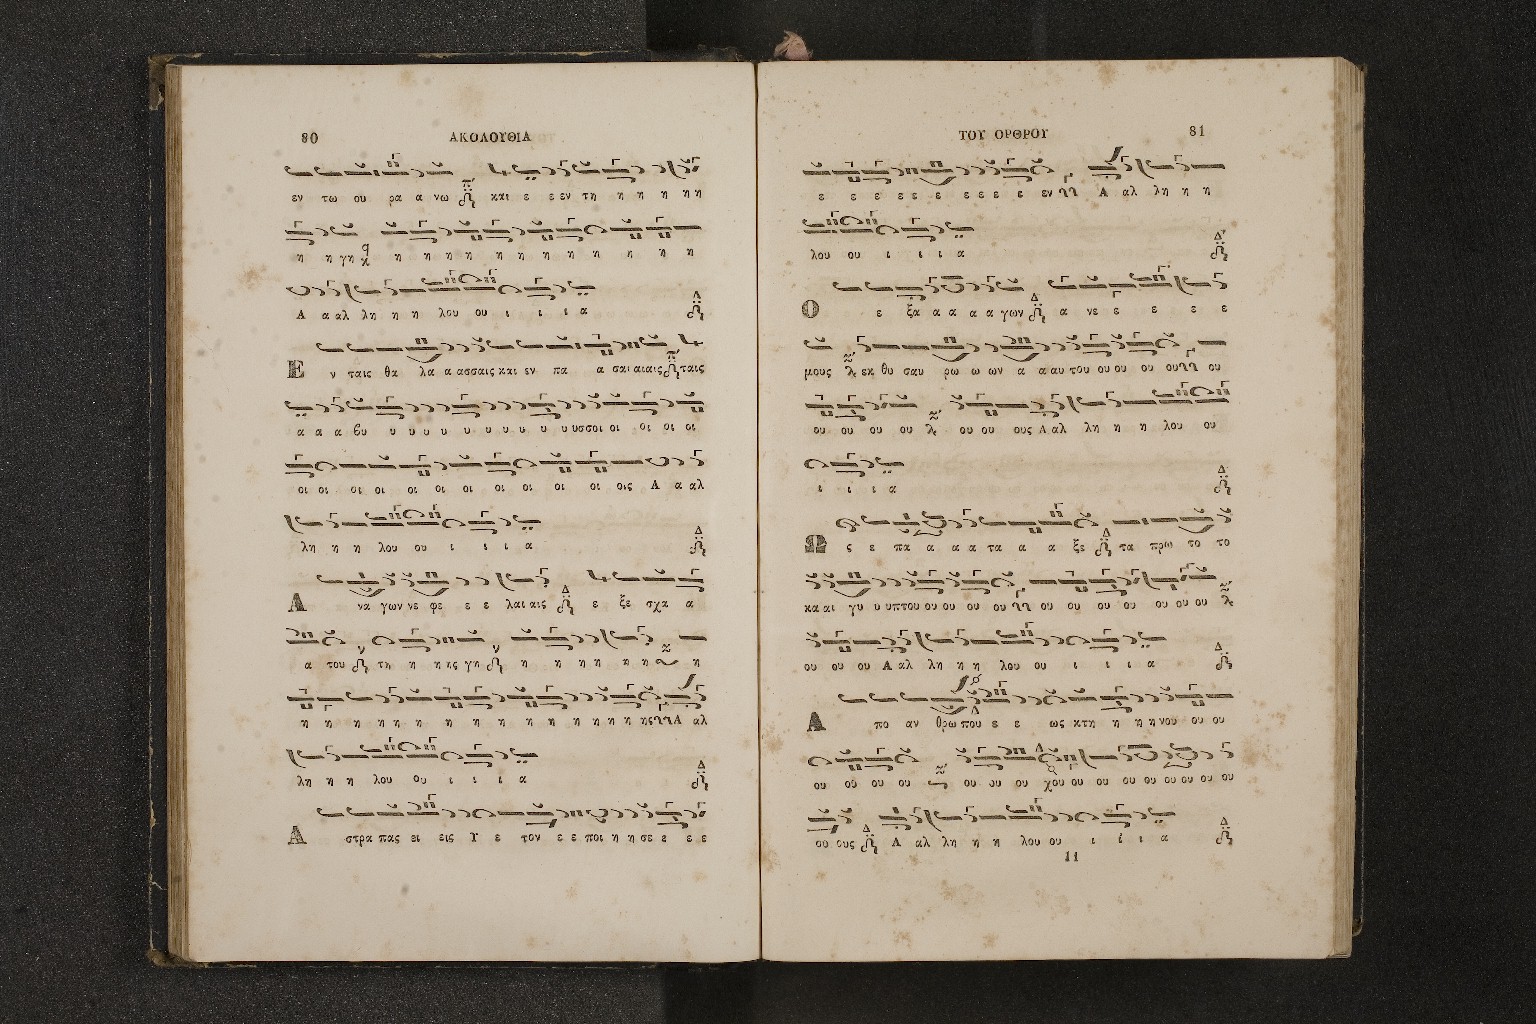 80
ΑΚΟΛΟΥΘΙΑ
εν τω ου ρα α νω και ε ε εν τη η η η η η
η η γη η η η η η η η η η η η
Α α αλ λη η η λου ου ι ι ι α
Ε ν ταις θα λα α ασσαις και εν πα α σαι αιαις ταις
α α α βυ υ υ υ υ υ υ υ υ υσσοι οι οι οι οι
οι οι οι οι οι οι οι οι οι οι οι οις Α α αλ
λη η η λου ου ι ι ι α
Α να γων νε φε ε ε λαι αις ε ξε σχα α
α του τη η η ης γη η η η η η η η
η η η η η η η η η η η η η η ης Α αλ
λη η η λου ου ι ι ι α
Α στρα πας ει εις Υ ε τον ε ε ποι η η σε ε ε ε
ΤΟΥ ΟΡΘΡΟΥ
81
ε ε ε ε ε ε ε ε ε ε εν Α αλ λη η η
λου ου ι ι ι α
Ο ε ξα α α α α γων α νε ε ε ε ε
μους εκ θυ σαυ ρω ω ων α α αυ του ου ου ου ου ου
ου ου ου ου ου ου ους Α αλ λη η η λου ου
ι ι ι α
Ω ς ε πα α α α τα α α ξε τα πρω το το
κα αι γυ υ υπτου ου ου ου ου ου ου ου ου ου ου ου
ου ου ου Α αλ λη η η λου ου ι ι ι α
Α πο αν θρω που ε ε ως κτη η η η νου ου ου
ου ου ου ου ου ου ου χου ου ου ου ου ου ου ου ου
ου ους Α αλ λη η η λου ου ι ι ι α
11